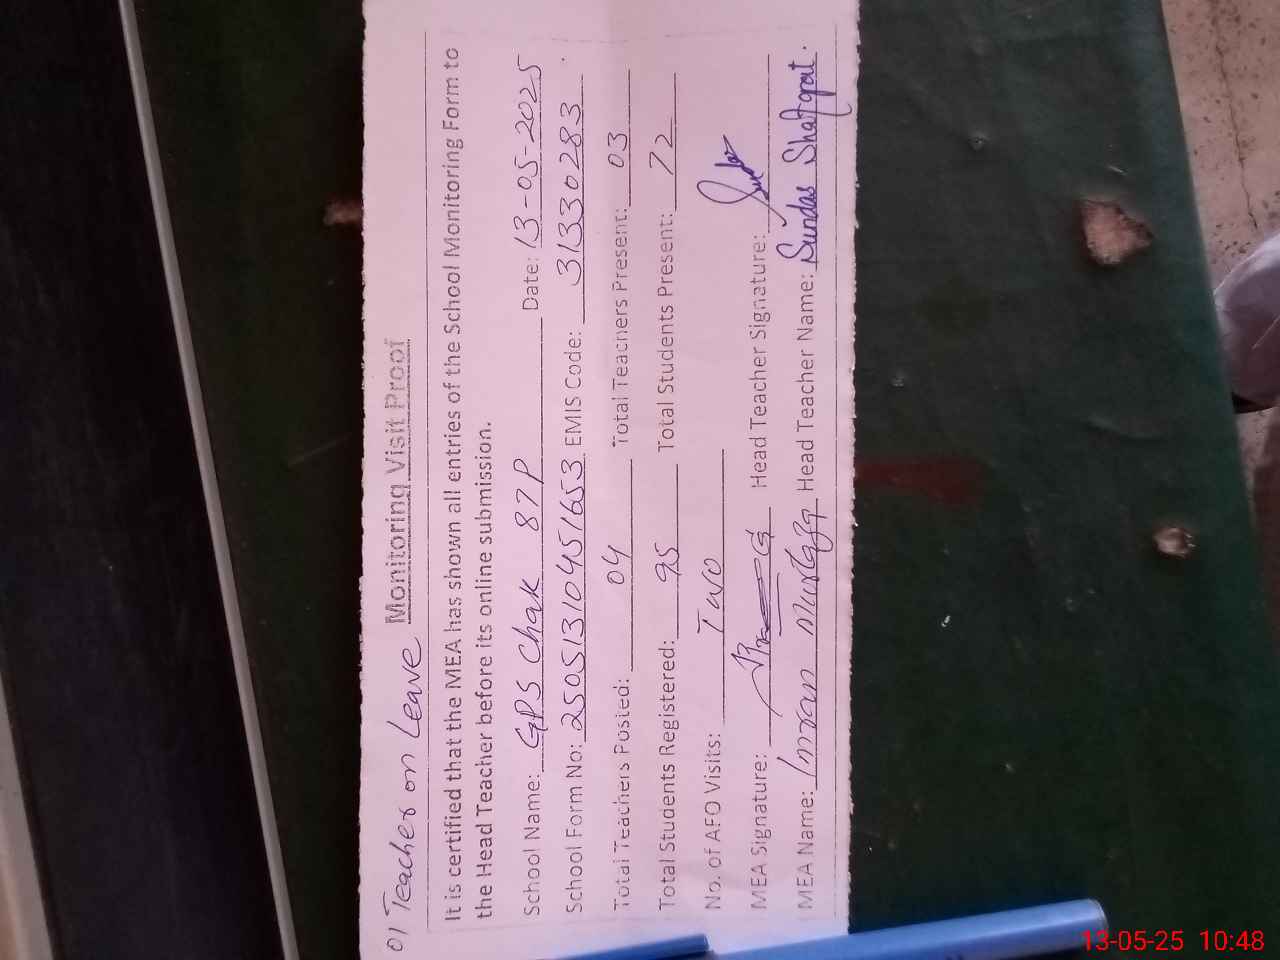 01 Teacher on Leave
Monitoring Visit Proof
It is certified that the MEA has shown all entries of the School Monitoring Form to
the Head Teacher before its online submission.
School Name: GPS Chak 87P Date: 13-05-2025
School Form No: 25051310451653 EMIS Code: 31330283
Total Teachers Posted: 04 Total Teachers Present: 03
Total Students Registered: 95 Total Students Present: 72
No. of AFO Visits: Two
MEA Signature: Head Teacher Signature:
MEA Name: Imran Head Teacher Name: Sundas Shafqat.
13-05-25 10:48